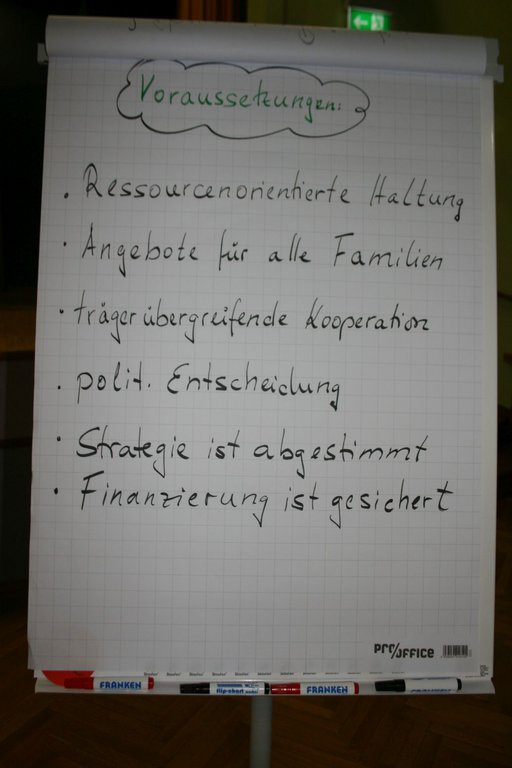 Voraussetzungen:
. Ressourcenorientierte Haltung
. Angebote für alle Familien
. trägerübergreifende Kooperation
. polit. Entscheidung
. Strategie ist abgestimmt
. Finanzierung ist gesichert
PRO/OFFICE
FRANKEN flip-chart FRANKEN FRANKEN